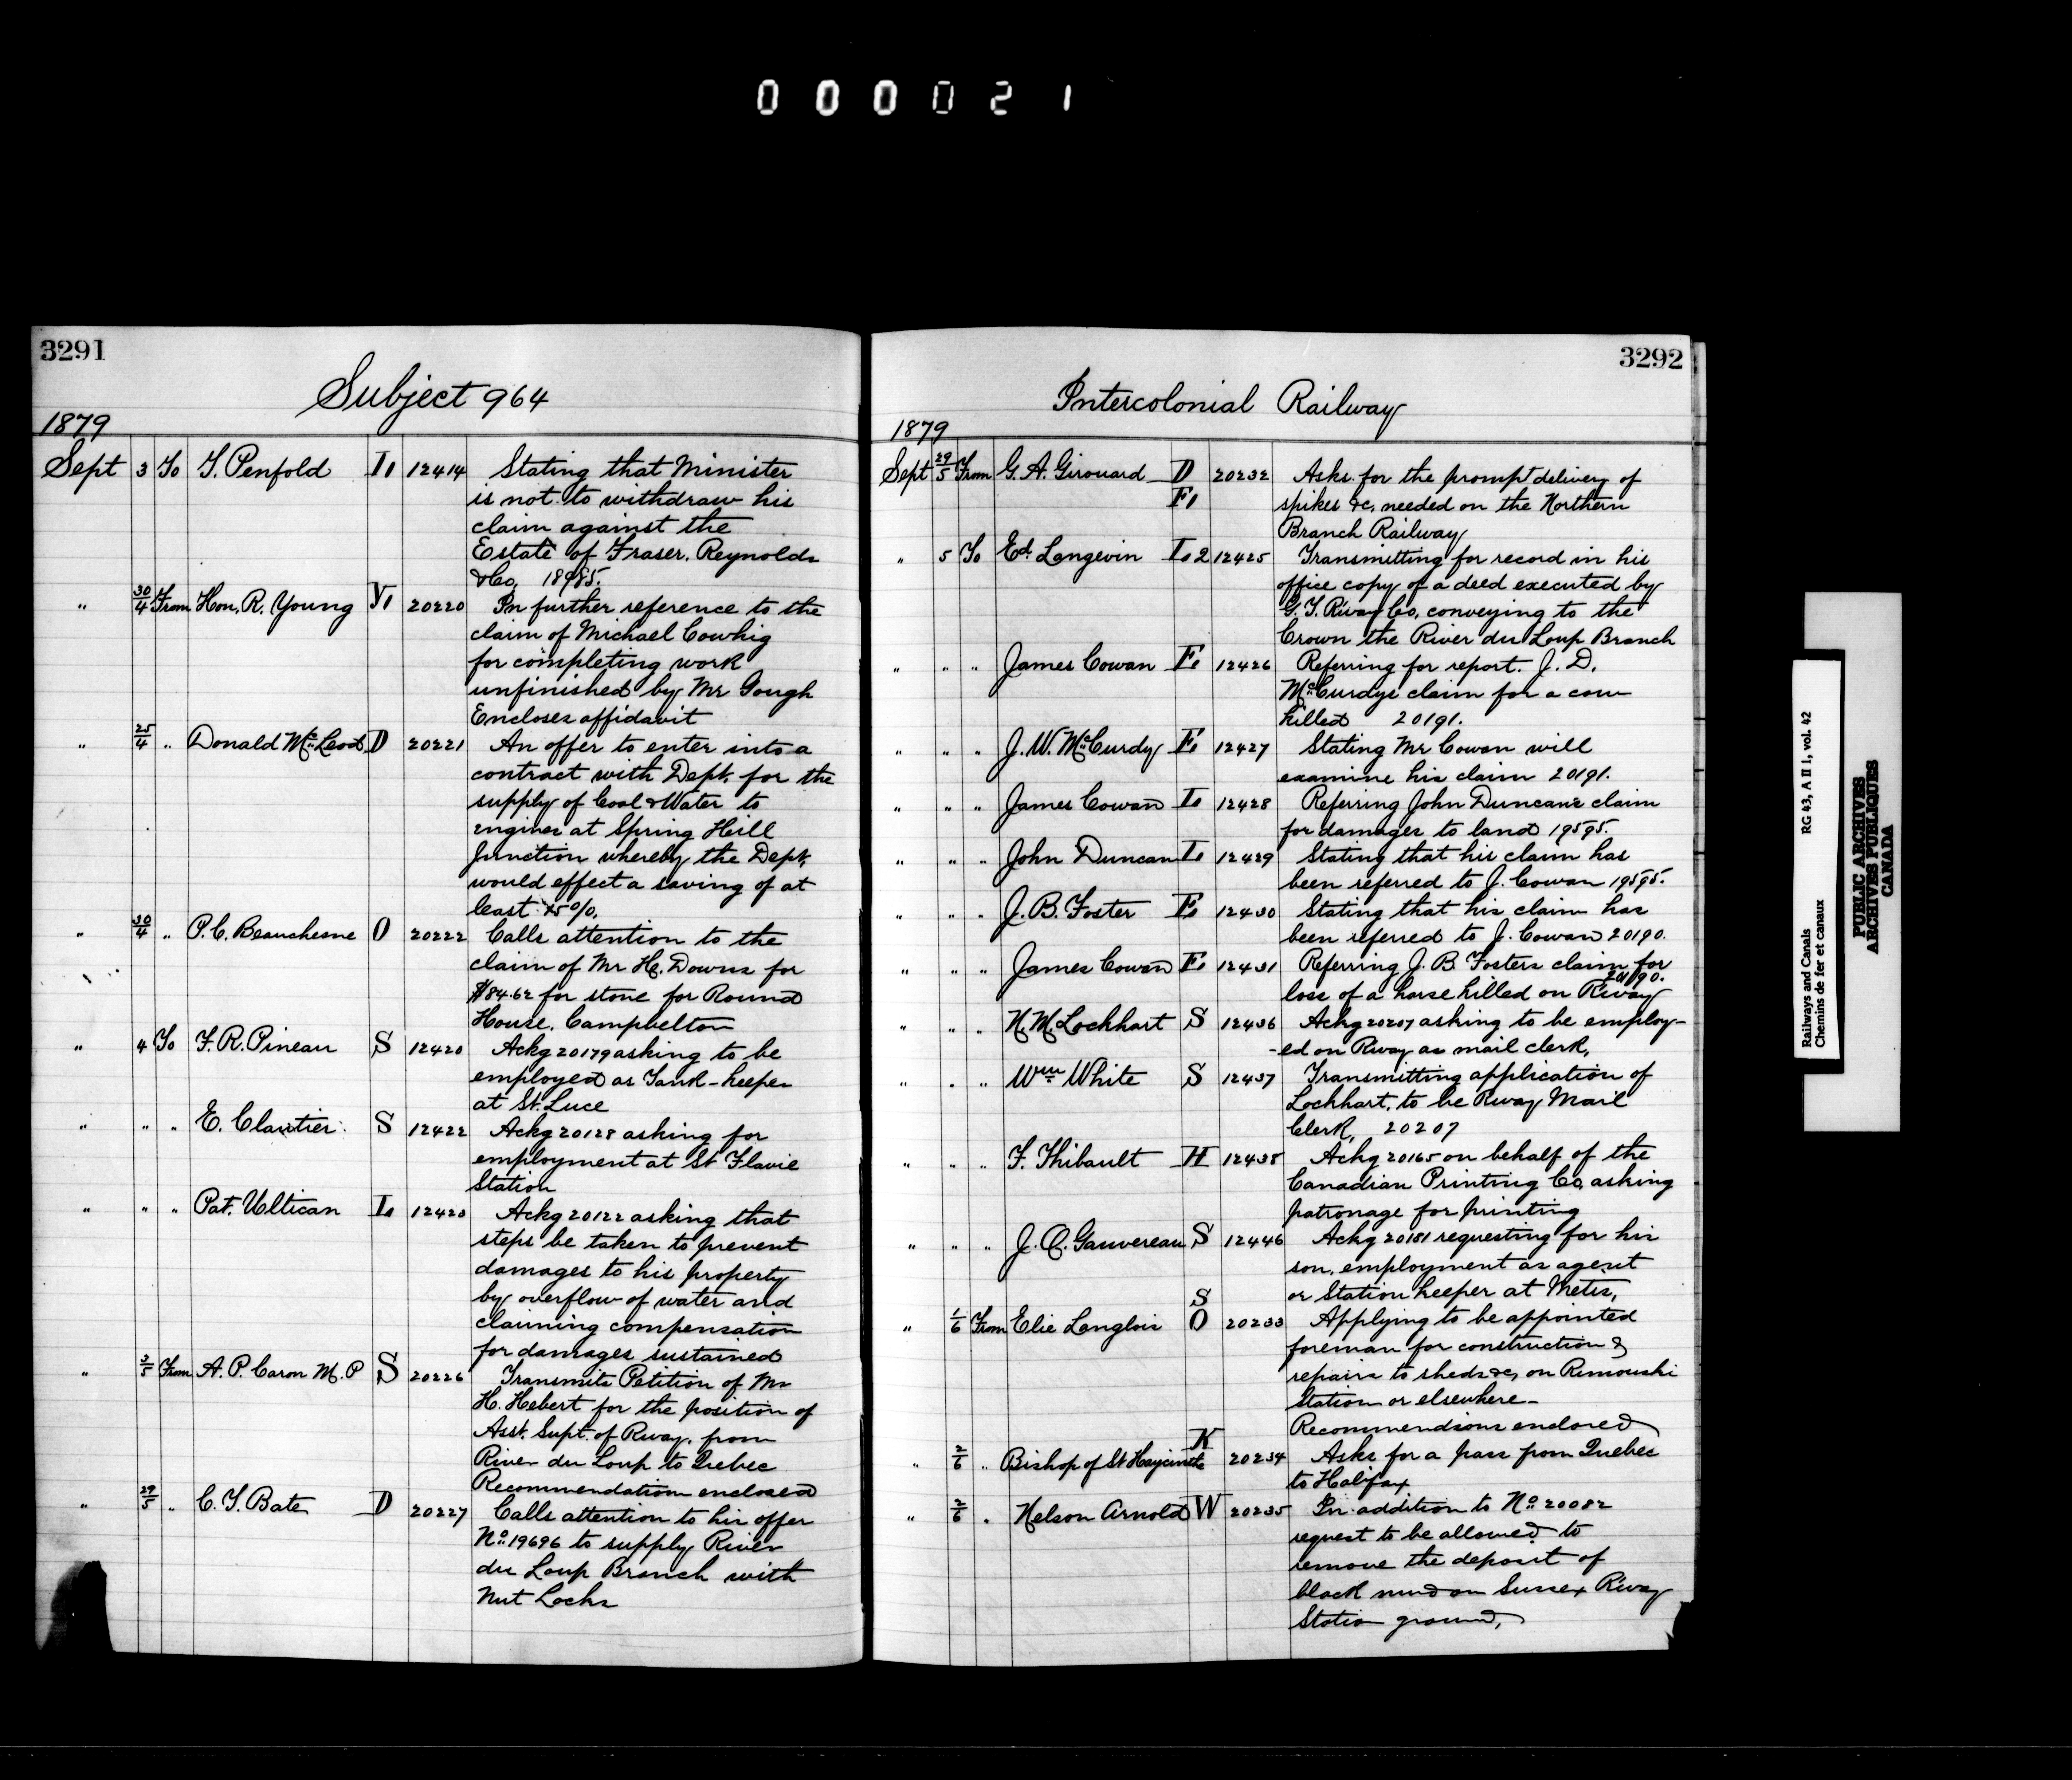 000021
3291
Subject 964
1879
Sept 3 To T. Penfold L 12414 Stating that Minister
is not to withdraw his
claim against the
Estate of Fraser, Reynolds
& Co, 18985.
" 30/4 From Hon, R. Young Y 20220 In further reference to the
claim of Michael Cowhig
for completing work
unfinished by Mr Gough
Encloses affidavit
" 25/4 " Donald McLeod D 20221 An offer to enter into a
contract with Dept. for the
supply of Coal & Water to
engines at Spring Hill
Junction whereby the Dept,
would effect a saving of at
least 25%.
" 30/4 " P. C. Beauchesne O 20222 Calls attention to the
claim of Mr H. Downs for
$84.62 for stone for Round
House, Campbelton
" 4 To F. R. Pineau S 12420 Ackg 20179 asking to be
employed as Tank-keeper
at St. Luce
" " " E. Clautier S 12422 Ackg 20128 asking for
employment at St Flavie
Station
" " " Pat. Ultican L 12423 Ackg 20122 asking that
steps be taken to prevent
damages to his property
by overflow of water and
claiming compensation
for damages sustained
" 3/5 From A. P. Caron M. P S 20226 Transmits Petition of Mr
H. Hebert for the position of
Asst. Supt. of Rway. from
River du Loup to Quebec
Recommendation enclosed
" 29/5 " C. T. Bate D 20227 Calls attention to his offer
No. 19696 to supply River
du Loup Branch with
Nut Locks
3292
Intercolonial Railway
1879
Sept 29/5 From G. A. Girouard D 20232 Asks for the prompt delivery of
F spikes &c, needed on the Northern
Branch Railway
" 5 To Ed. Langevin L 2 12425 Transmitting for record in his
office copy of a deed executed by
G. T. Rway Co, conveying to the
Crown the River du Loup Branch
" " " James Cowan F 12426 Referring for report. J. D.
McCurdys claim for a cow
killed 20191.
" " " J. W. McCurdy F 12427 Stating Mr Cowan will
examine his claim 20191.
" " " James Cowan L 12428 Referring John Duncan's claim
for damages to land 19595.
" " " John Duncan L 12429 Stating that his claim has
been referred to J. Cowan 19595.
" " " J. B. Foster F 12430 Stating that his claim has
been referred to J. Cowan 20190.
" " " James Cowan F 12431 Referring J. B. Fosters claim for
20190.
loss of a horse killed on Rway
" " " N. M. Lockhart S 12436 Ackg 20207 asking to be employ-
-ed on Rway as mail clerk,
" " " Wm White S 12437 Transmitting application of
Lockhart, to be Rway Mail
Clerk, 20207
" " " F. Thibault H 12438 Ackg 20165 on behalf of the
Canadian Printing Co, asking
patronage for printing
" " " J. O. Gauvereau S 12446 Ackg 20181 requesting for his
son, employment as agent
or Station keeper at Metis,
S
" 1/6 From Elie Langlois O 20233 Applying to be appointed
foreman for construction &
repairs to sheds &c, on Rimouski
Station or elsewhere-
Recommendsions enclosed
K
" 2/6 " Bishop of St Haycinthe 20234 Asks for a pass from Quebec
to Halifax
" 2/6 " Nelson Arnold W 20235 In addition to No. 20082
request to be allowed to
remove the deposit of
black mud on Sussex Rway
Station ground,
Railways and Canals RG 43, A II 1, vol. 42
Chemins de fer et canaux
PUBLIC ARCHIVES
ARCHIVES PUBLIQUES
CANADA